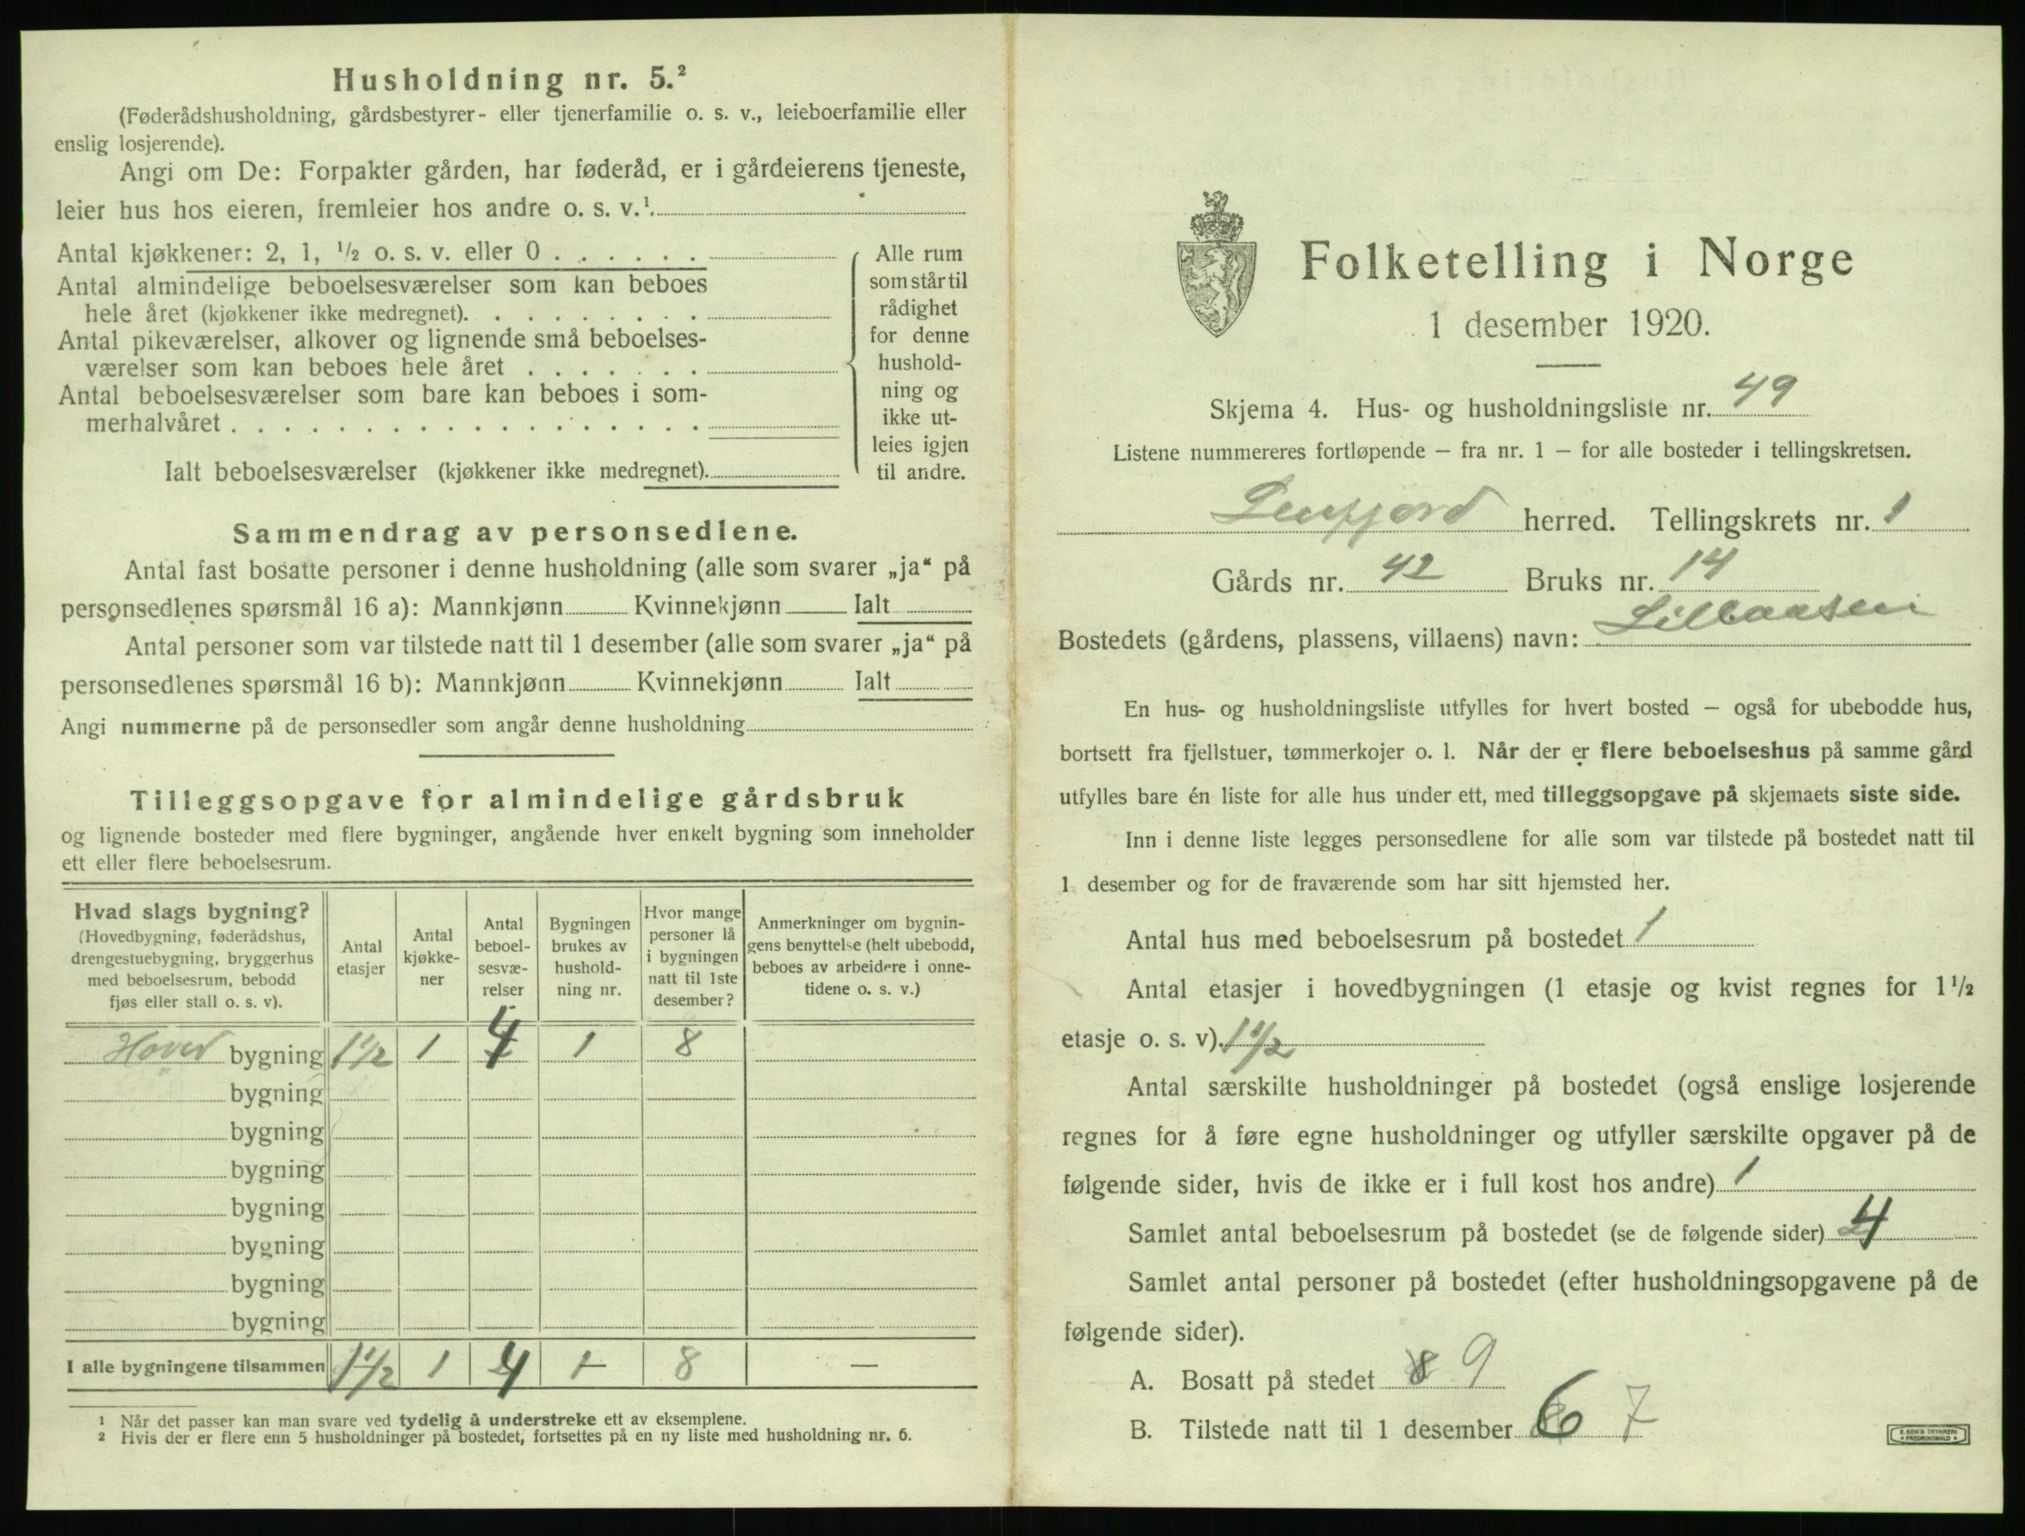 Husholdning nr. 5.²
(Føderådshusholdning, gårdsbestyrer- eller tjenerfamilie o. s. v., leieboerfamilie eller
enslig losjerende).
Angi om De: Forpakter gården, har føderåd, er i gårdeierens tjeneste,
leier hus hos eieren, fremleier hos andre o. s. v.¹.
Antal kjøkkener: 2, 1, ¹/₂ o. s. v. eller 0 . . . . . .
Antal almindelige beboelsesværelser som kan beboes
hele året (kjøkkener ikke medregnet). . . . . . . . .
Antal pikeværelser, alkover og lignende små beboelses-
værelser som kan beboes hele året . . . . . . .
Antal beboelsesværelser som bare kan beboes i som-
merhalvåret . . . . . . . . . . . . . . . . . .
Ialt beboelsesværelser (kjøkkener ikke medregnet).
Alle rum
som står til
rådighet
for denne
hushold-
ning og
ikke ut-
leies igjen
til andre.
Sammendrag av personsedlene.
Antal fast bosatte personer i denne husholdning (alle som svarer „ja“ på
personsedlenes spørsmål 16 a): Mannkjønn Kvinnekjønn Ialt
Antal personer som var tilstede natt til 1 desember (alle som svarer „ja“ på
personsedlenes spørsmål 16 b): Mannkjønn Kvinnekjønn Ialt
Angi nummerne på de personsedler som angår denne husholdning
Tilleggsopgave for almindelige gårdsbruk
og lignende bosteder med flere bygninger, angående hver enkelt bygning som inneholder
ett eller flere beboelsesrum.
Hvad slags bygning?
(Hovedbygning, føderådshus,
drengestuebygning, bryggerhus
med beboelsesrum, bebodd
fjøs eller stall o. s. v).
Antal
etasjer
Antal
kjøkke-
ner
Antal
beboel-
sesvæ-
relser
Bygningen
brukes av
hushold-
ning nr.
Hvor mange
personer lå
i bygningen
natt til 1ste
desember?
Anmerkninger om bygnin-
gens benyttelse (helt ubebodd,
beboes av arbeidere i onne-
tidene o. s. v.)
Hoved bygning 1 1/2 1 4 1 8
bygning
bygning
bygning
bygning
bygning
bygning
bygning
I alle bygningene tilsammen 1 1/2 1 4 1 8 —
¹ Når det passer kan man svare ved tydelig å understreke ett av eksemplene.
² Hvis der er flere enn 5 husholdninger på bostedet, fortsettes på en ny liste med husholdning nr. 6.
Folketelling i Norge
1 desember 1920.
Skjema 4. Hus- og husholdningsliste nr. 49
Listene nummereres fortløpende – fra nr. 1 – for alle bosteder i tellingskretsen.
herred. Tellingskrets nr. 1
Gårds nr. 42 Bruks nr. 14
Bostedets (gårdens, plassens, villaens) navn: Lillaasen
En hus- og husholdningsliste utfylles for hvert bosted – også for ubebodde hus,
bortsett fra fjellstuer, tømmerkojer o. l. Når der er flere beboelseshus på samme gård
utfylles bare én liste for alle hus under ett, med tilleggsopgave på skjemaets siste side.
Inn i denne liste legges personsedlene for alle som var tilstede på bostedet natt til
1 desember og for de fraværende som har sitt hjemsted her.
Antal hus med beboelsesrum på bostedet 1
Antal etasjer i hovedbygningen (1 etasje og kvist regnes for 1¹/₂
etasje o. s. v). 1 1/2
Antal særskilte husholdninger på bostedet (også enslige losjerende
regnes for å føre egne husholdninger og utfyller særskilte opgaver på de
følgende sider, hvis de ikke er i full kost hos andre) 1
Samlet antal beboelsesrum på bostedet (se de følgende sider) 4
Samlet antal personer på bostedet (efter husholdningsopgavene på de
følgende sider).
A. Bosatt på stedet 8 9
B. Tilstede natt til 1 desember 6 7